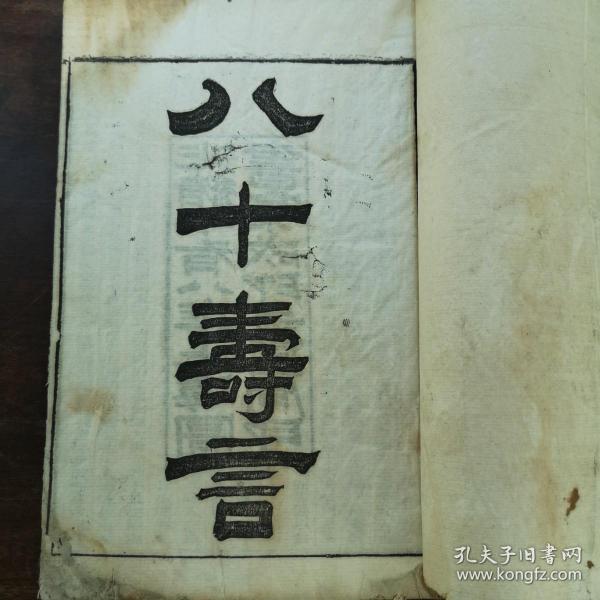 八十壽言
孔夫子旧书网
www.kongfz.com